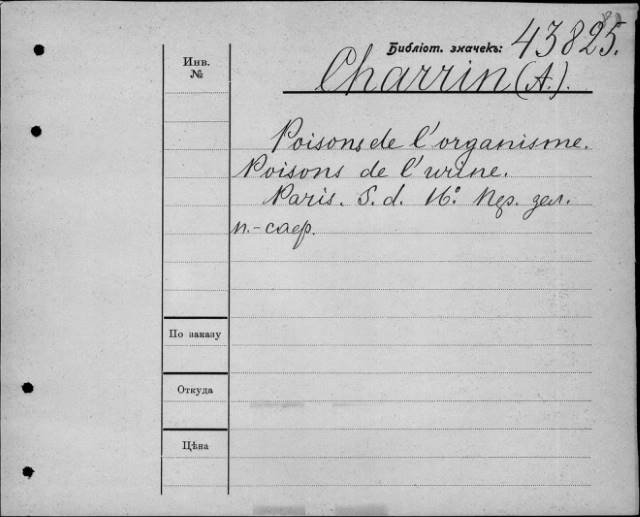 Библіот. значекъ: 43825.
Инв.
№
Charrin (A.).
Poisons de l'organisme.
Poisons de l'urine.
Paris. S. d. 16°.
По заказу
Откуда
Цѣна